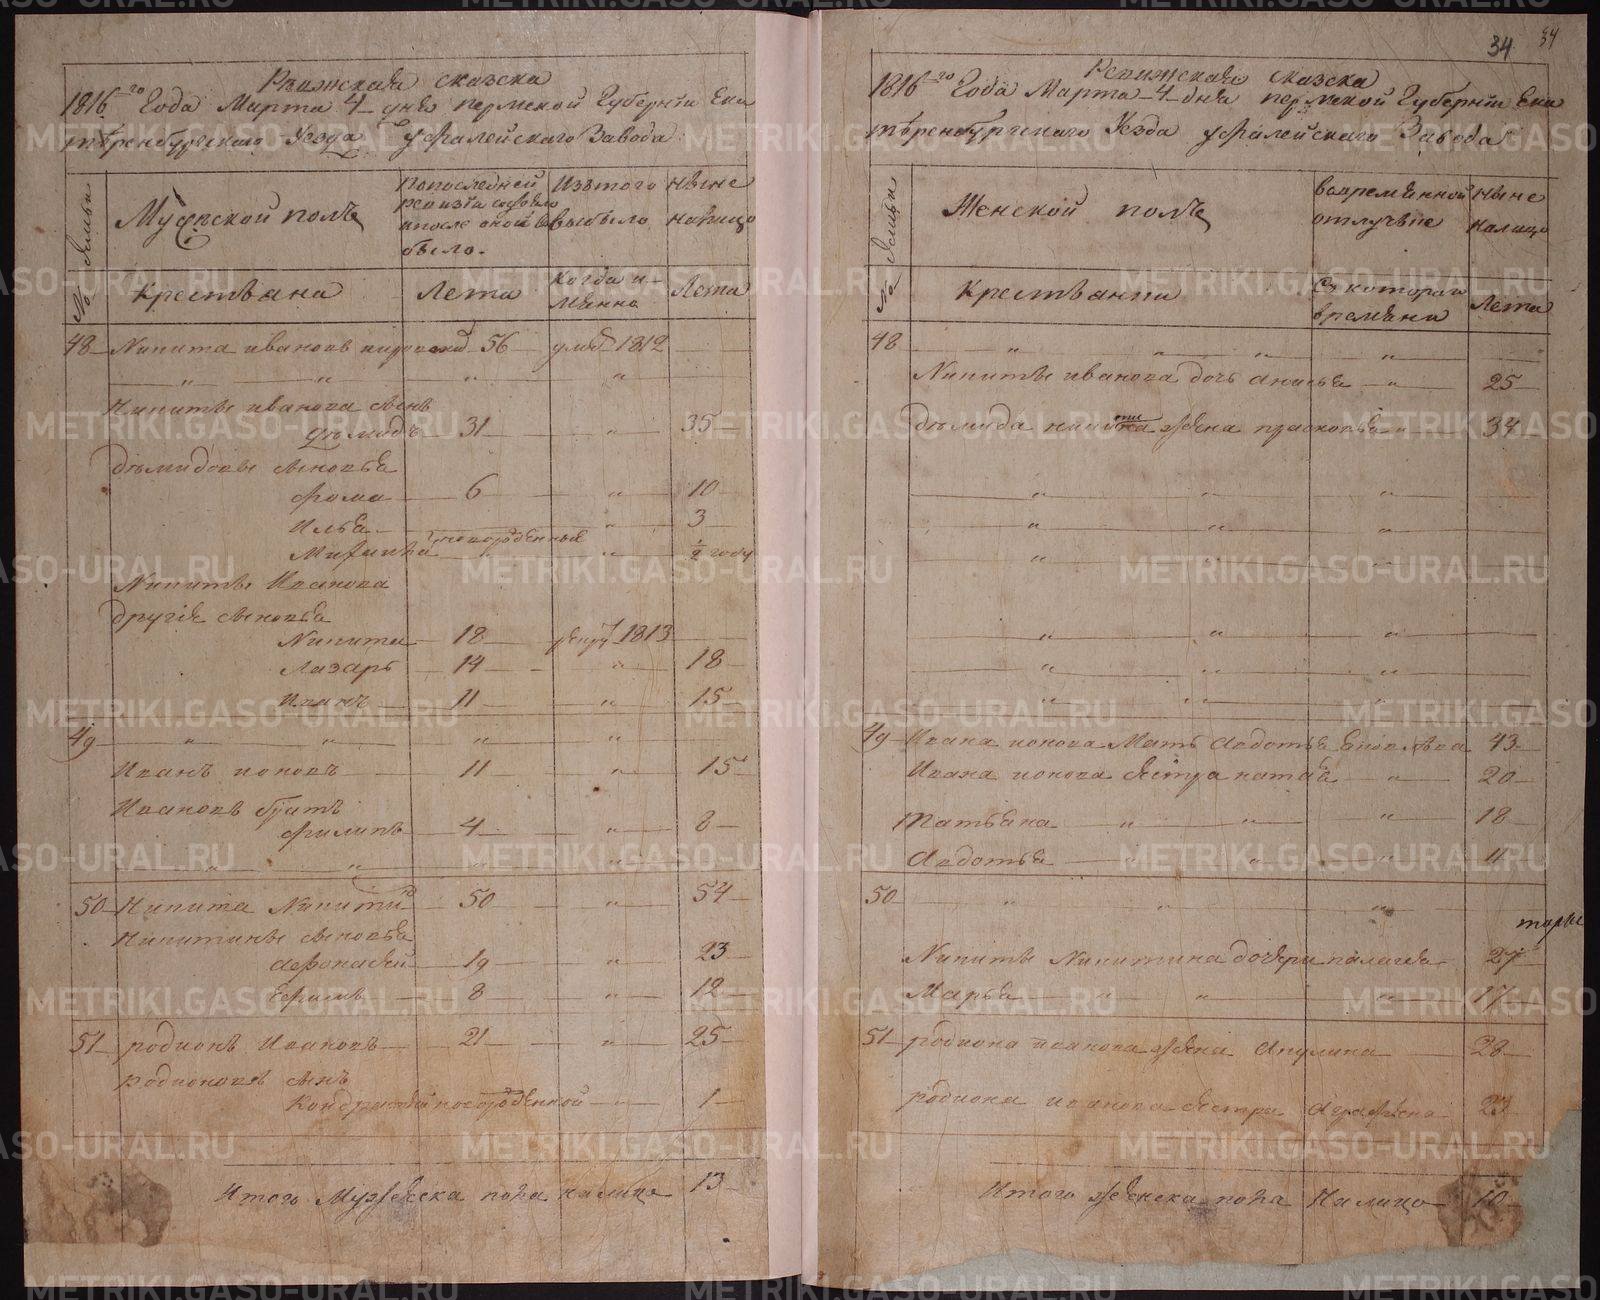 34 34
Ревижская сказска
1816го Года Марта 4 дня пермской Губернiи Ека
теренбургского Уезда уфалейского Завода
№ семьи
Мужской полъ
Попоследней ревизiи состояло ипосле оной было.
Изътого выбыло
Ныне налицо
Крестьяна
Лета
Когда имянно
Лета
48 Никита ивановъ 56 умре 1812
Никиты иванова сынъ
демидъ 31 35
демидовы сыновья
фома 6 10
Илья 3
новорожденныя
1/2 году
Никиты Иванова
другiя сыновья
Никита 18 рекру 1813
Лазарь 14 18
Иванъ 11 15
49
Иванъ ионовъ 11 15
Ивановъ братъ
филипъ 4 8
50 Никита Никитин 50 54
Никитины сыновья
Афонасей 19 23
Ефимъ 8 12
51 родионъ Ивановъ 21 25
родионовъ сынъ
Кондратей новорожденной 1
Итого Мужеска пола налицо 13
Ревижская сказска
1816го Года Марта 4 дня пермской Губернiи Ека
теренбургского Уезда уфалейского Завода
№ семьи
Женской полъ
вовременной отлучке
Ныне налицо
Крестьянки
Съ которого времени
Лета
48
Никиты иванова дочь анисья 25
демида никитина жена прасковья 34
49 Ивана ионова Мать Авдотья 43
Ивана ионова сестра наталья 20
Татьяна 18
Авдотья 11
50
Никиты Никитина дочери палагея 27
Марья 17
51 родиона иванова жена Акулина 28
родиона иванова сестра Аграфена 23
Итого женска пола Налицо 10
METRIKI.GASO-URAL.RU